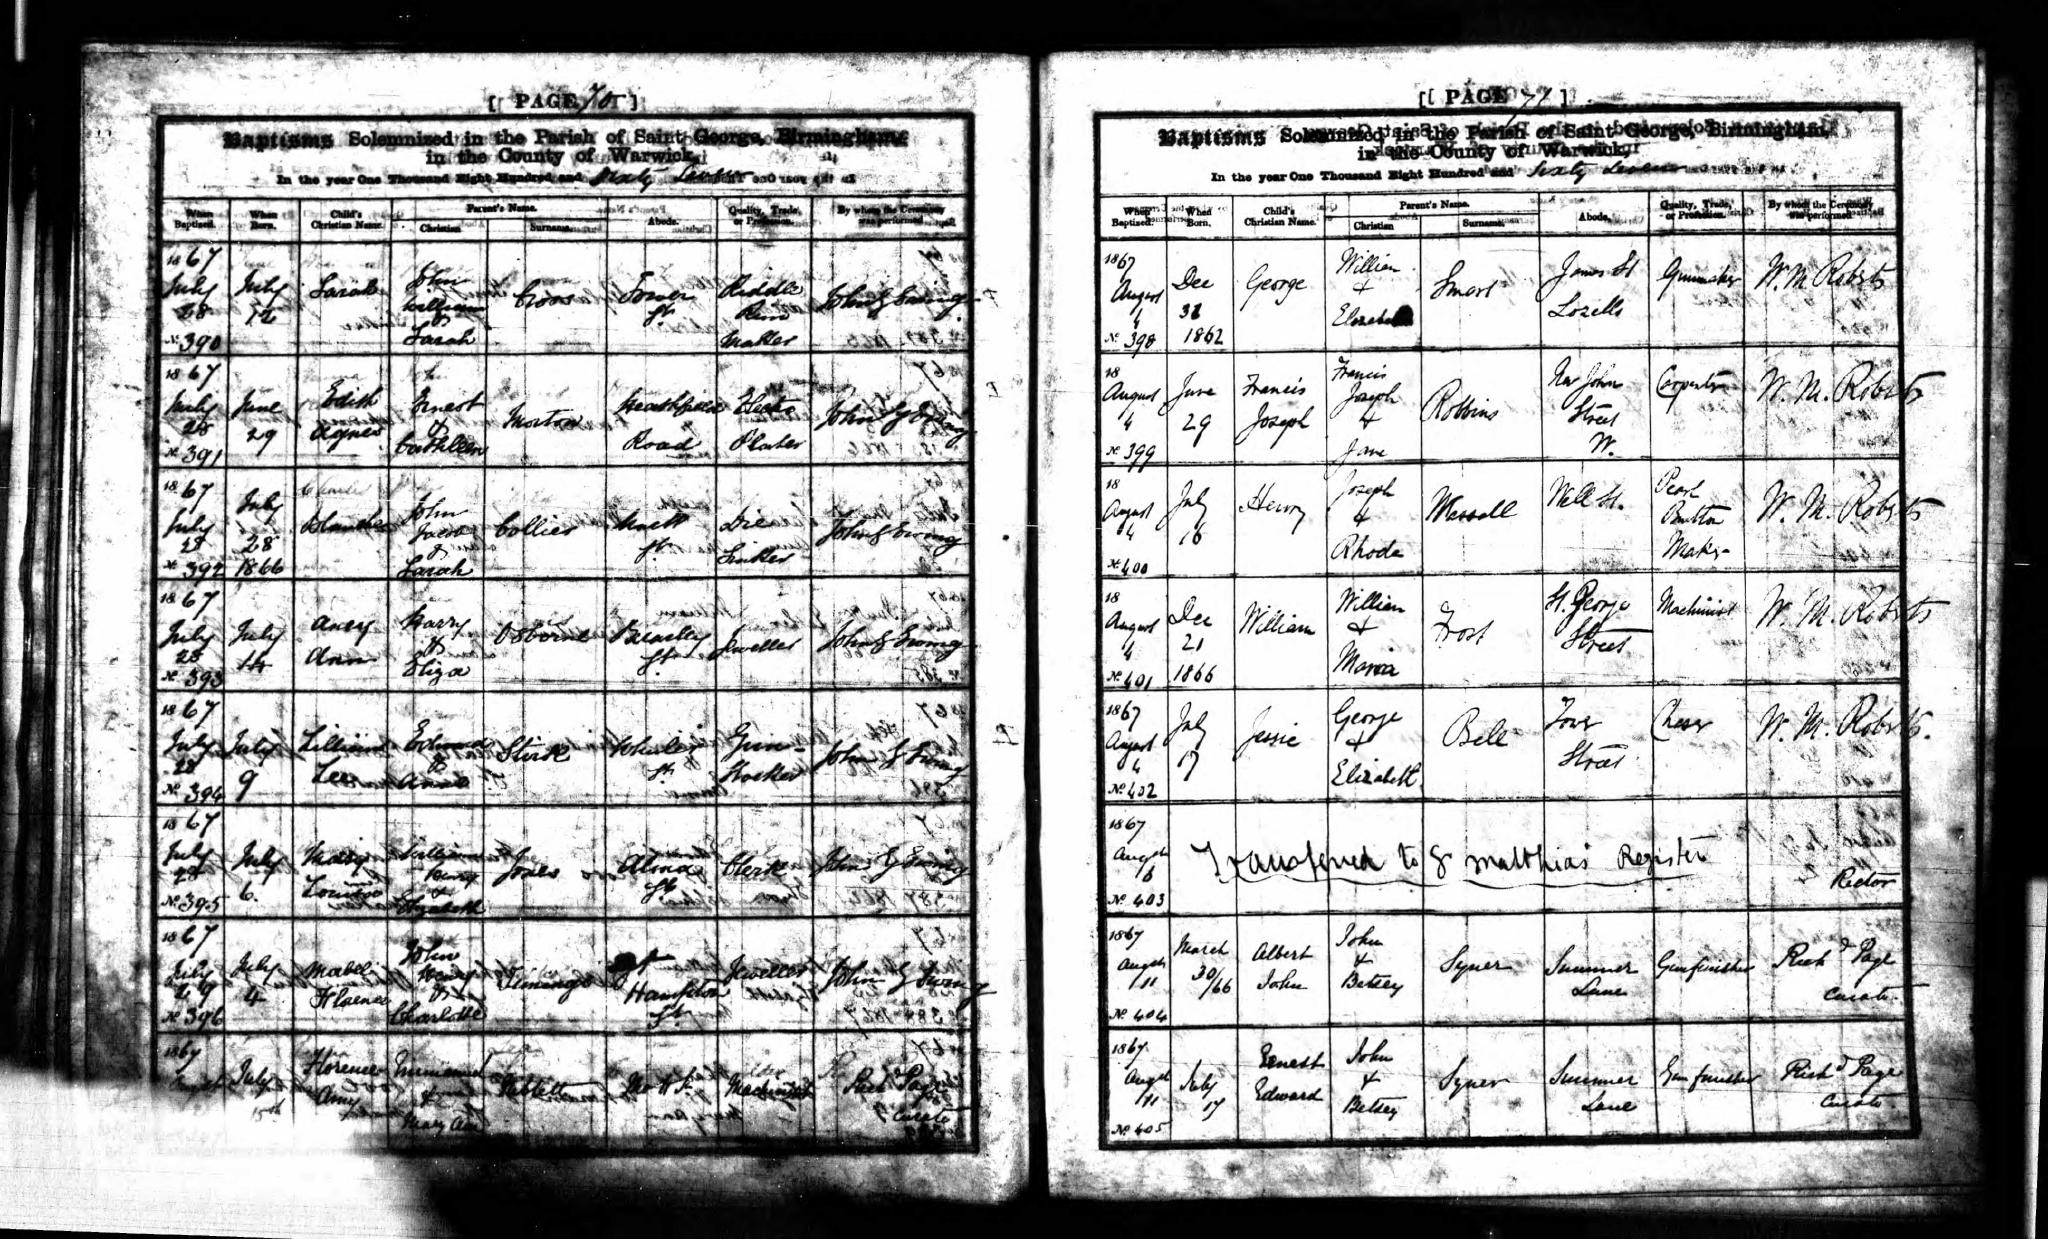 [ PAGE 70 ]
Baptisms Solemnized in the Parish of Saint George, Birmingham,
in the County of Warwick,
In the year One Thousand Eight Hundred and Sixty
When Baptized. When Born. Child's Christian Name. Parent's Name. Christian Surname. Abode. Quality, Trade, or Profession. By whom the Ceremony was performed
1867 July 28 No. 390 July Sarah John William & Sarah Cross Tower St. Rim Maker John G Ewing
1867 July 28 No. 391 June 29 Edith Agnes Ernest & Cathleen Morton Heathfield Road Electro Plater John G Ewing
1867 July 28 No. 392 July 28 1866 Blanche John Jacob & Sarah Collier St. Die Sinker John G Ewing
1867 July 28 No. 393 July 14 Ann Harry & Eliza Osborne Brearley St. Jeweller John G Ewing
1867 July 28 No. 394 July 9 Lillian Lee & Annie Wheeler St. Gun Stocker John G Ewing
1867 July 28 No. 395 July 6. Mary Louisa William Henry & Elizabeth Jones Alma St. Clerk John G Ewing
1867 July 29 No. 396 July 4 Mabel Florence John Henry & Charlotte Hampton St. Jeweller John G Ewing
1867 July 15th Florence Amy Emmanuel & Mary Ann Machinist Richd Page Curate
[ PAGE 71 ]
Baptisms Solemnized in the Parish of Saint George, Birmingham,
in the County of Warwick,
In the year One Thousand Eight Hundred and Sixty Seven
When Baptized. When Born. Child's Christian Name. Parent's Name. Christian Surname. Abode. Quality, Trade, or Profession. By whom the Ceremony was performed
1867 August 4 No. 398 Dec 31 1862 George William & Elizabeth Smart James St Lozells Gunmaker W. M. Roberts
18 August 4 No. 399 June 29 Francis Joseph Francis Joseph & Jane Robbins New John Street W. Carpenter W. M. Roberts
18 August 4 No. 400 July 16 Henry Joseph & Rhoda Wassall Well St. Pearl Button Maker W. M. Roberts
18 August 4 No. 401 Dec 21 1866 William William & Maria Frost St. George Street Machinist W. M. Roberts
1867 August 4 No. 402 July 17 Jessie George & Elizabeth Bell Tower Street Chaser W. M. Roberts.
1867 Augst 6 No. 403 Transferred to S Matthias' Register Rector
1867 Augst 11 No. 404 March 30/66 Albert John John & Betsey Syner Summer Lane Gunfinisher Richd Page Curate.
1867. Augst 11 No. 405 July 17 Ernest Edward John & Betsey Syner Summer Lane Gunfinisher Richd Page Curate.